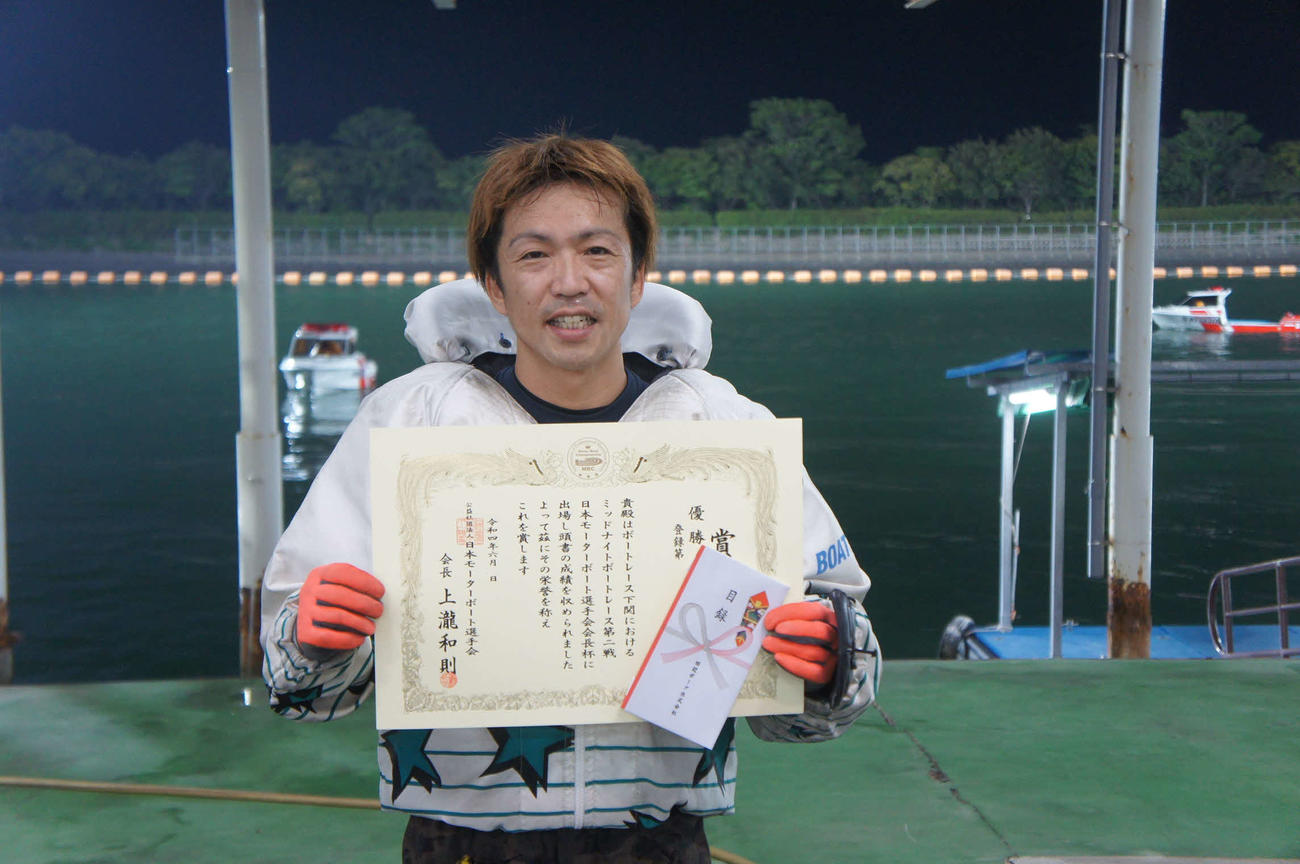 賞
優勝
登録第
貴殿はボートレース下関における
ミッドナイトボートレース第二戦
日本モーターボート選手会会長杯に
出場し頭書の成績を収められました
よって茲にその栄誉を称え
これを賞します
令和四年六月 日
公益社団法人日本モーターボート選手会
会長 上瀧和則
MBC
目録
BOAT